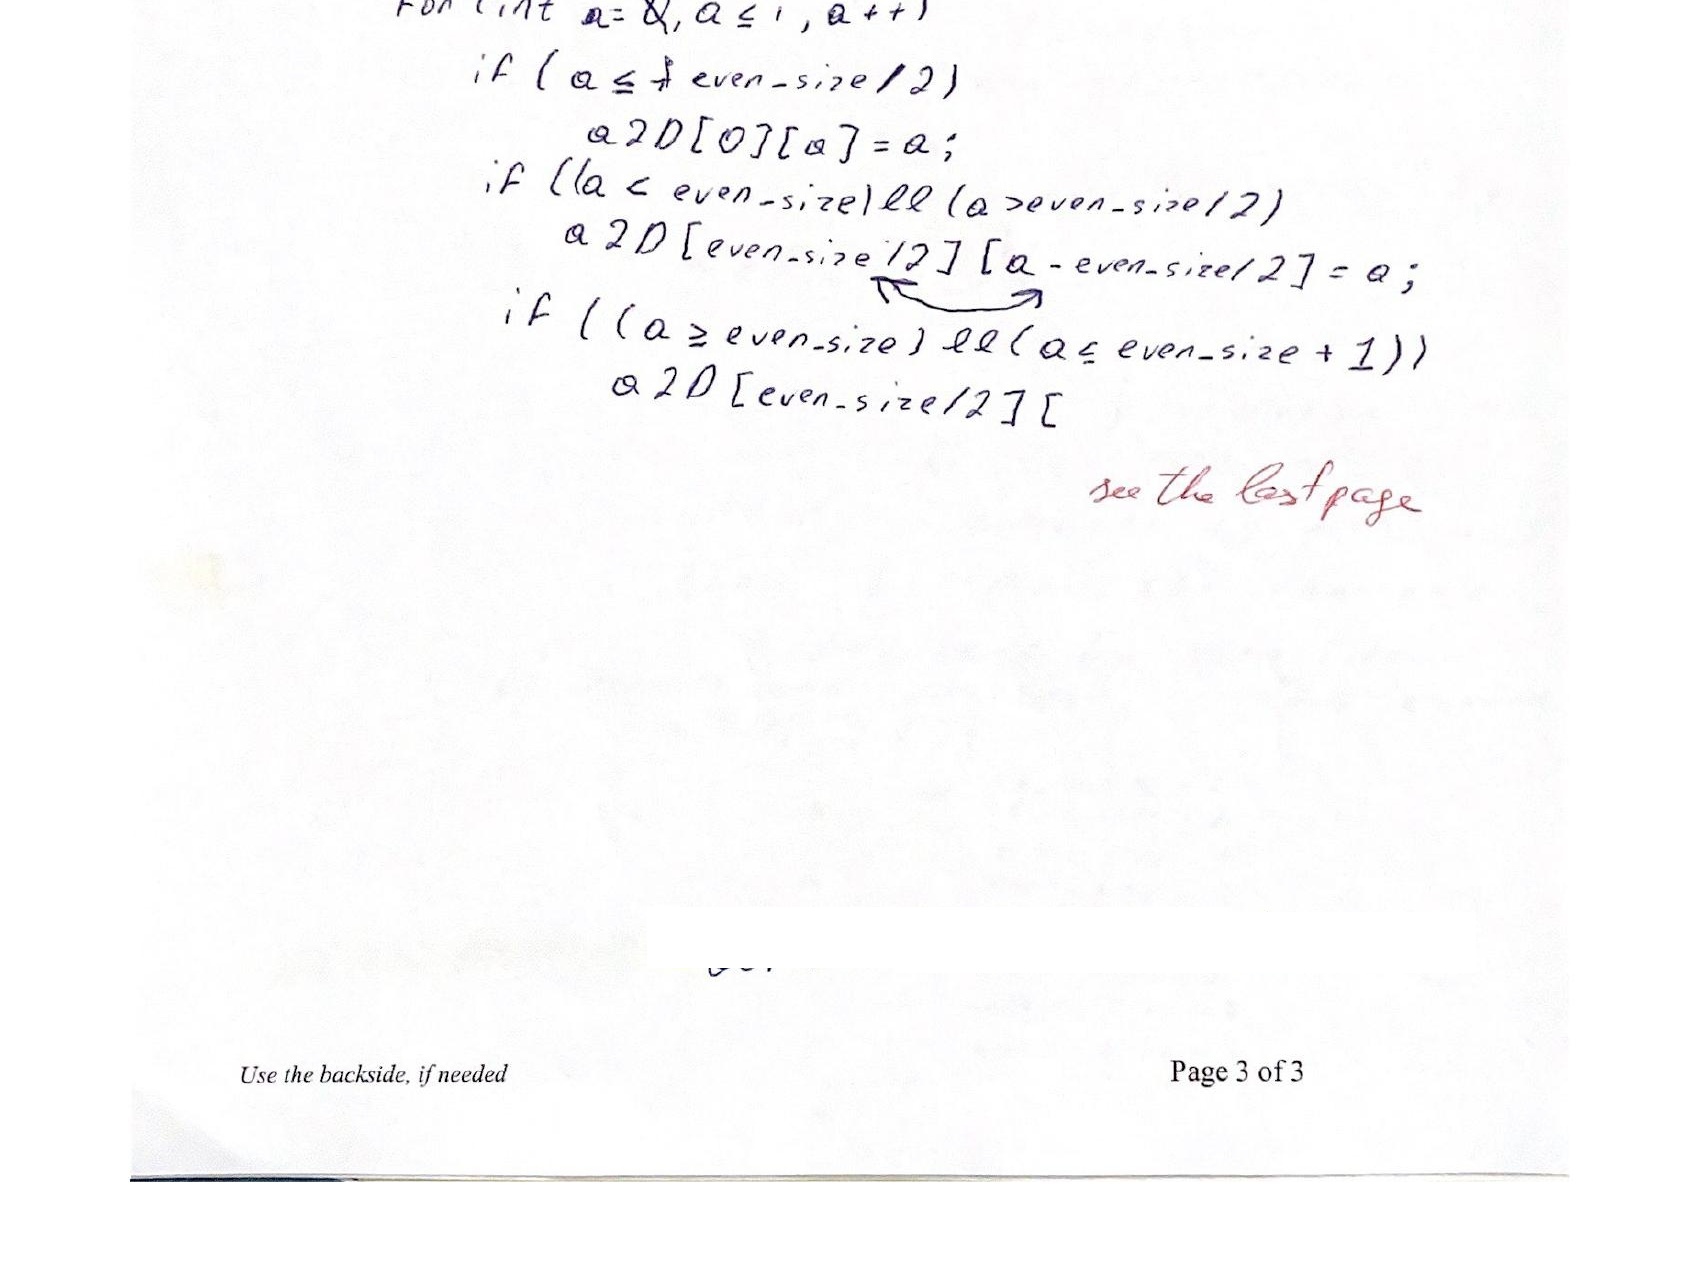 For (int a= 0, a ≤ i, a++)
if (a ≤ even_size/2)
a2D[0][a] = a;
if ((a < even_size) && (a >even_size/2)
a2D[even_size/2][a - even_size/2] = a;
if ((a ≥ even_size) && (a ≤ even_size + 1))
a2D[even_size/2][
see the last page
Use the backside, if needed
Page 3 of 3